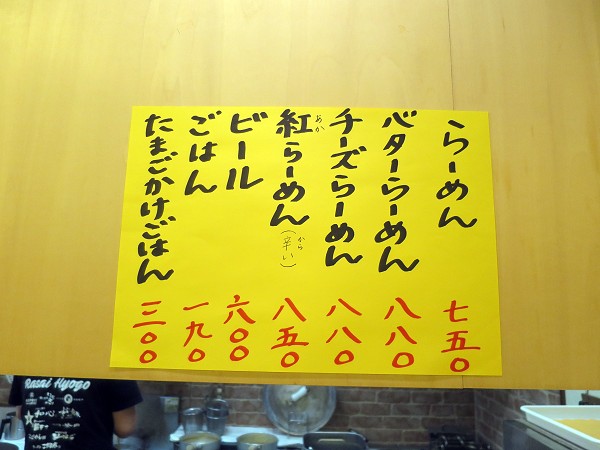 らーめん 七五〇
バターらーめん 八八〇
チーズらーめん 八八〇
紅らーめん(辛い) 八五〇
あか
から
ビール 六〇〇
ごはん 一九〇
たまごかけごはん 三〇〇
Rasai Hyogo